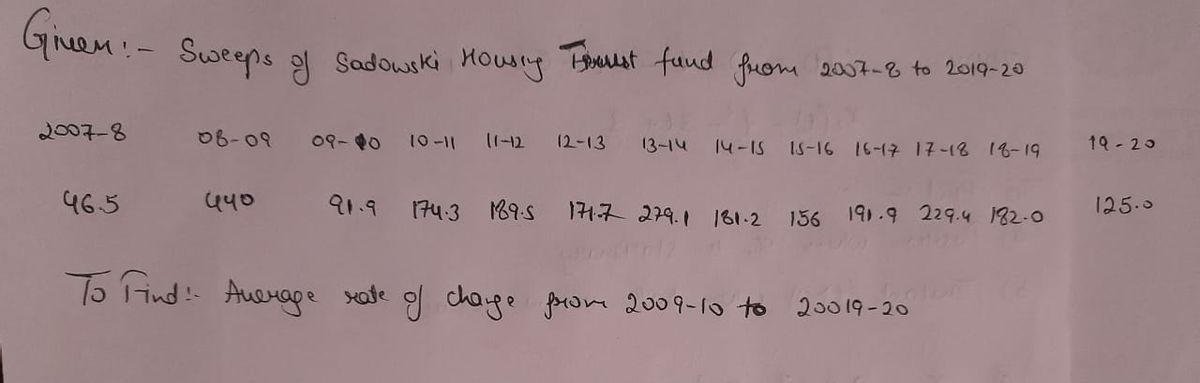 Given:- Sweeps of Sadowski Housing Trust fund from 2007-8 to 2019-20
2007-8 08-09 09-10 10-11 11-12 12-13 13-14 14-15 15-16 16-17 17-18 18-19 19-20
46.5 440 91.9 174.3 189.5 171.7 279.1 181.2 156 191.9 229.4 182.0 125.0
To Find:- Average rate of change from 2009-10 to 20019-20